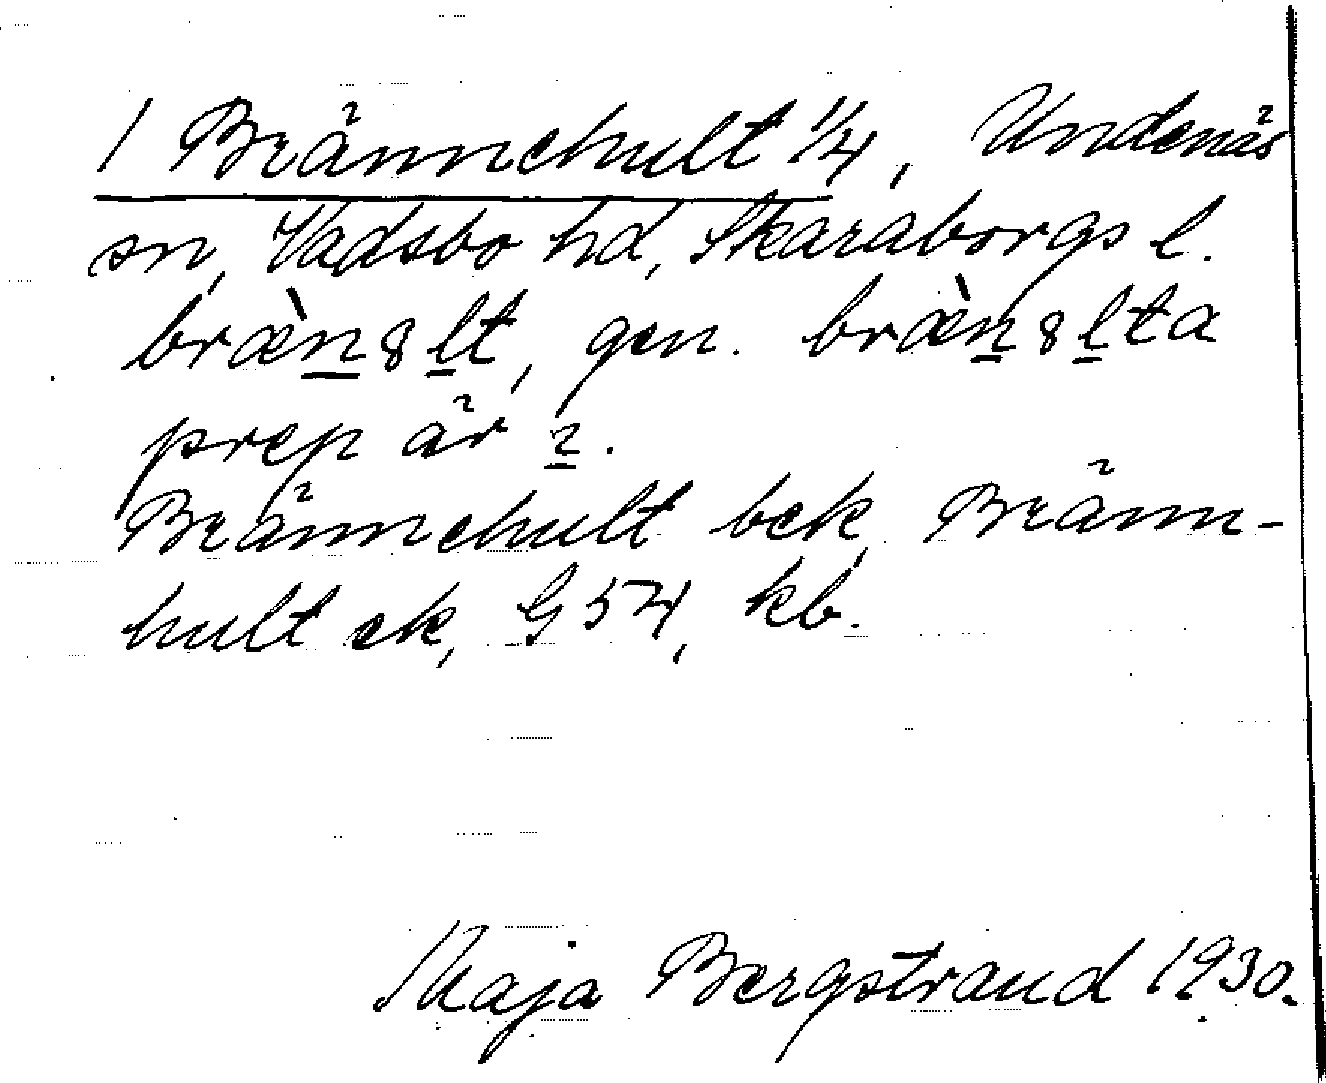 1 Brännehult 1/4, Undenäs
sn, Vadsbo hd, Skaraborgs l.
bræ̀n8lt, gen. bræ̀n8lta
prep är 2.
Brännehult bek, Bränn-
hult ek, G54, kb.
Maja Bergstrand 1930.